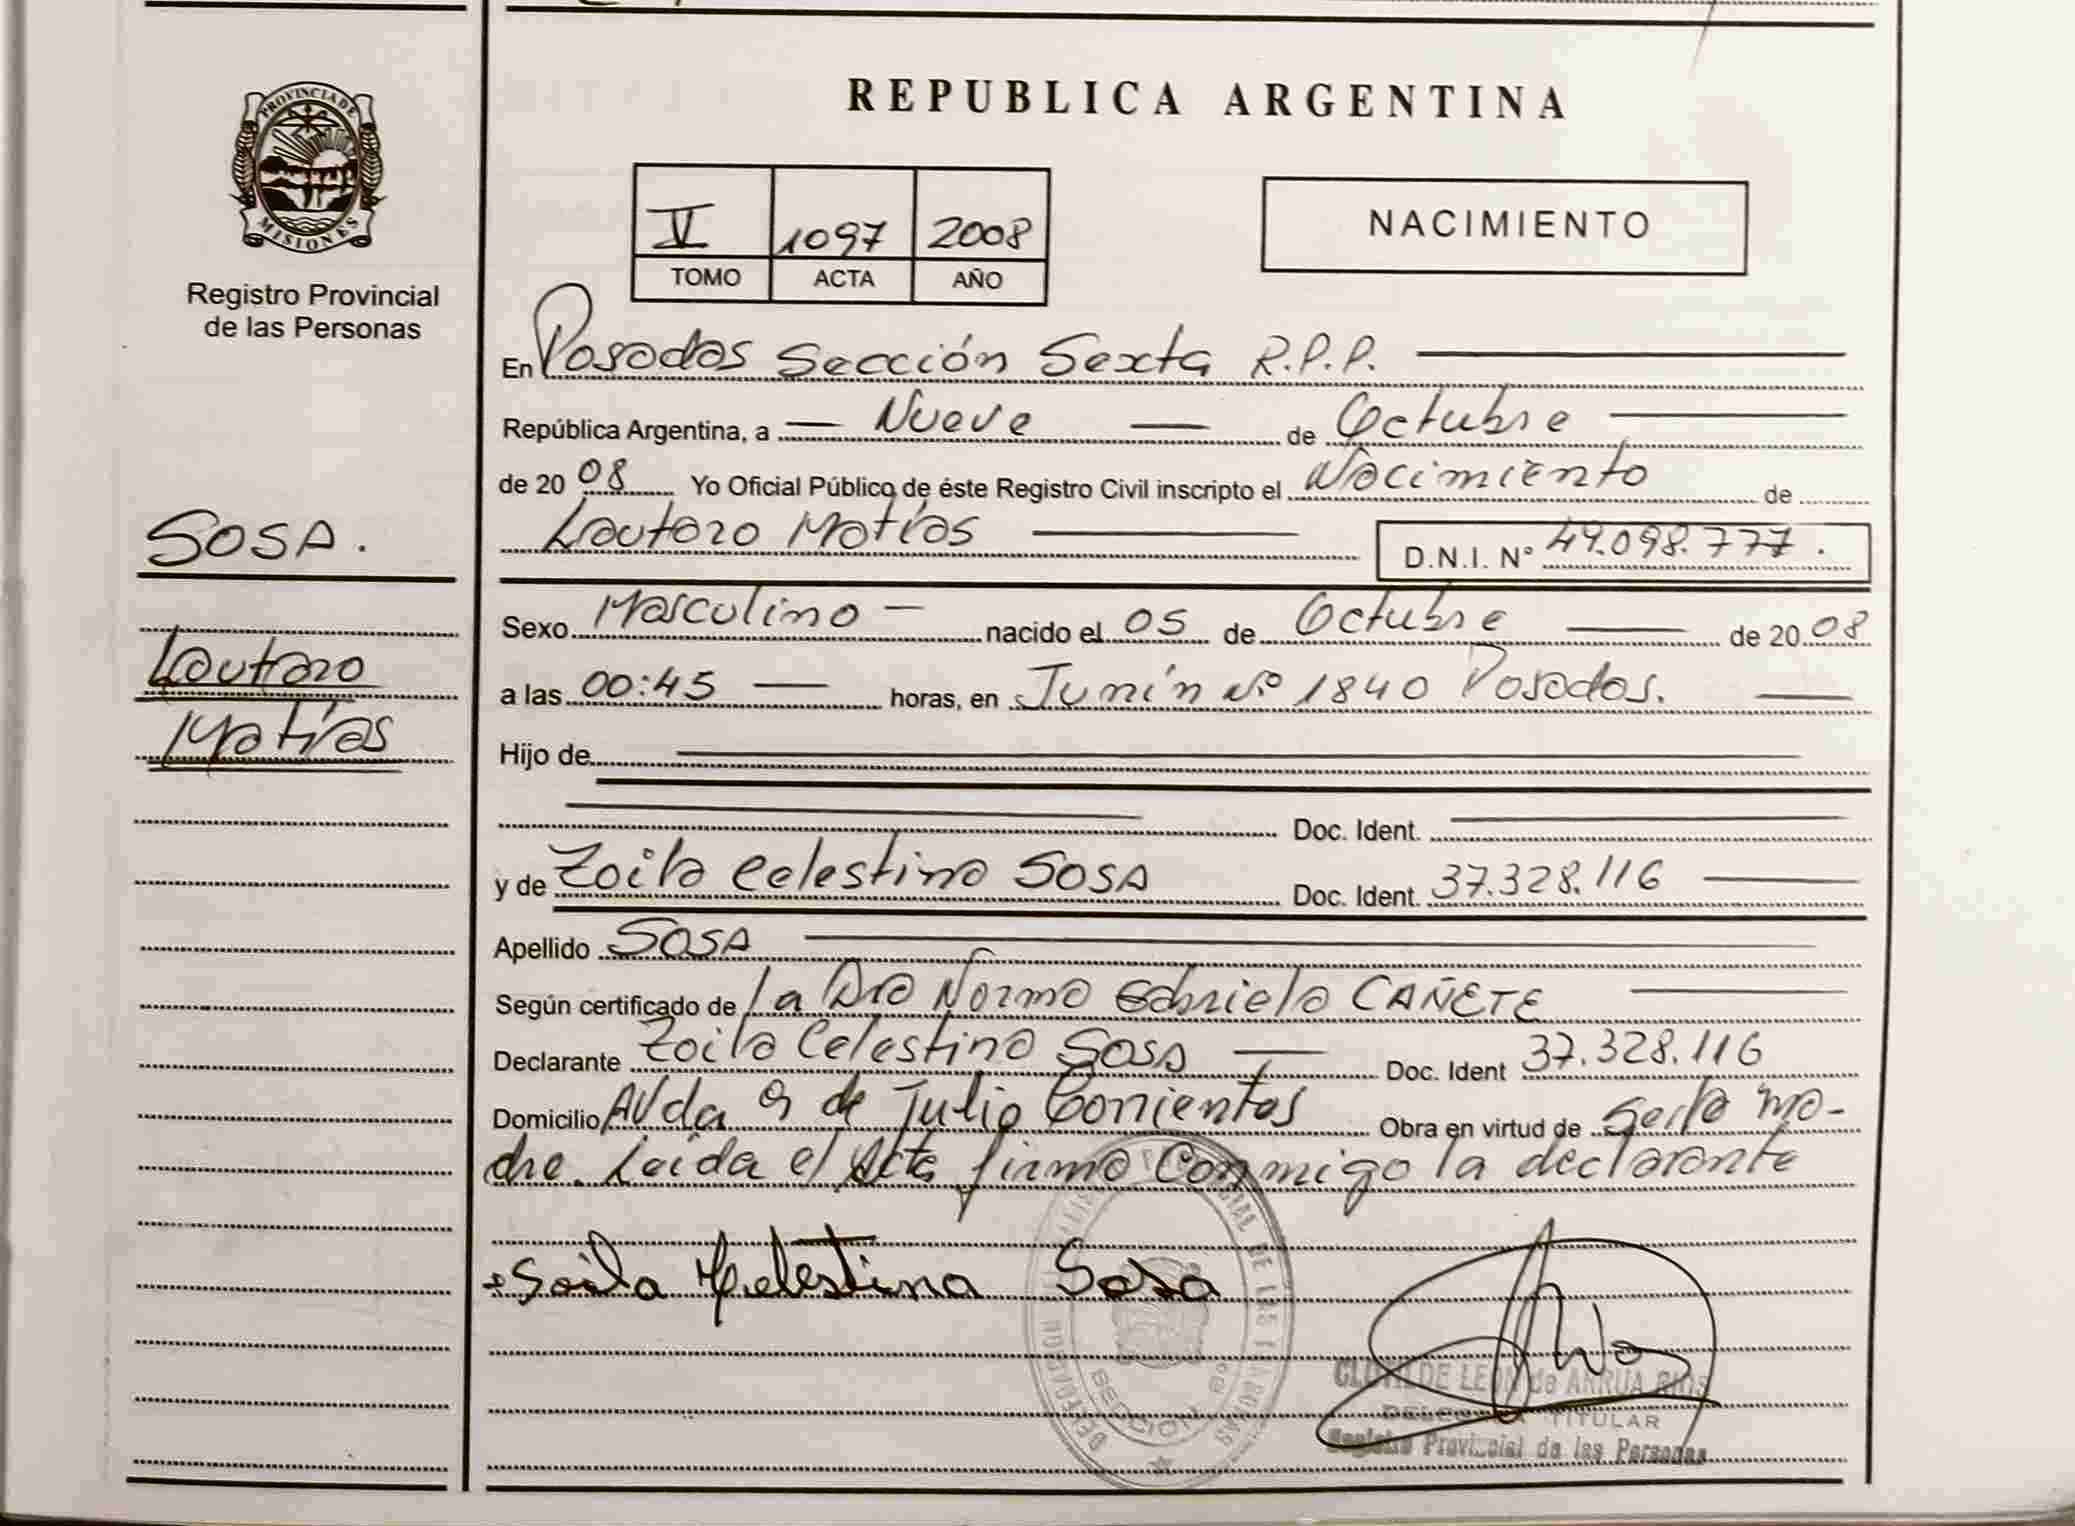 REPUBLICA ARGENTINA
PROVINCIA DE
MISIONES
Registro Provincial
de las Personas
V 1097 2008
TOMO ACTA AÑO
NACIMIENTO
En Posadas Sección Sexta R.P.P.
República Argentina, a Nueve de Octubre
de 2008 Yo Oficial Público de éste Registro Civil inscripto el Nacimiento de
Lautaro Matías D.N.I. Nº 49.098.777.
SOSA.
Lautaro
Matías
Sexo Masculino nacido el 05 de Octubre de 2008
a las 00:45 horas, en Junín Nº 1840 Posadas.
Hijo de
Doc. Ident.
y de Zoila Celestina SOSA Doc. Ident. 37.328.116
Apellido SOSA
Según certificado de la Dra Norma Gabriela CAÑETE
Declarante Zoila Celestina SOSA Doc. Ident 37.328.116
Domicilio Avda 9 de Julio Corrientes Obra en virtud de Ser la ma-
dre. Leída el Acta firma Conmigo la declarante
Soila Celestina Sosa
SECCION 6a
CLOTILDE LEON de ARRUA RIOS
DELEGADA TITULAR
Registro Provincial de las Personas